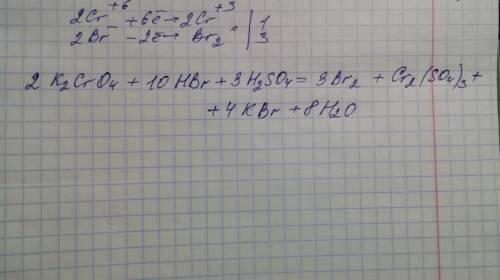 2Cr⁺⁶ +6ē→2Cr⁺³ | 1
2Br⁻ -2ē→ Br₂° | 3
2 K₂CrO₄ + 10 HBr + 3 H₂SO₄ = 3Br₂ + Cr₂(SO₄)₃ +
+4 KBr + 8H₂O